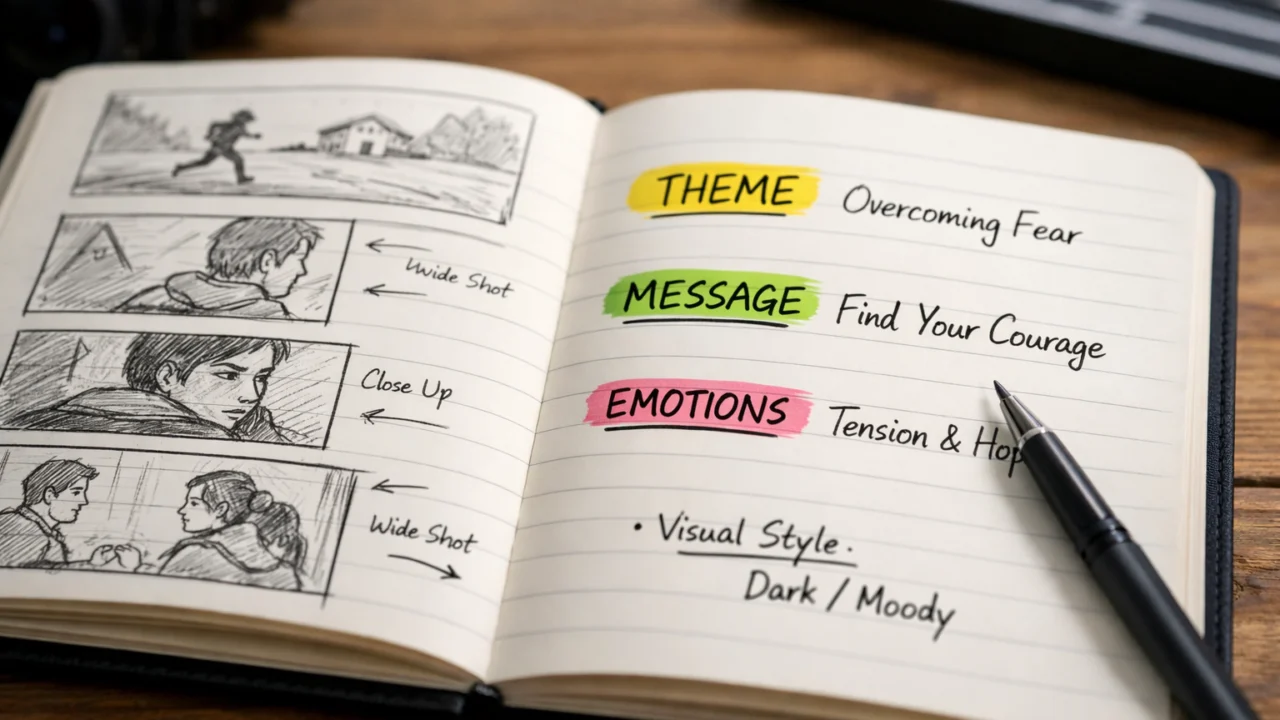 Wide Shot
Close Up
Wide Shot
THEME Overcoming Fear
MESSAGE Find Your Courage
EMOTIONS Tension & Hop
• Visual Style.
Dark / Moody